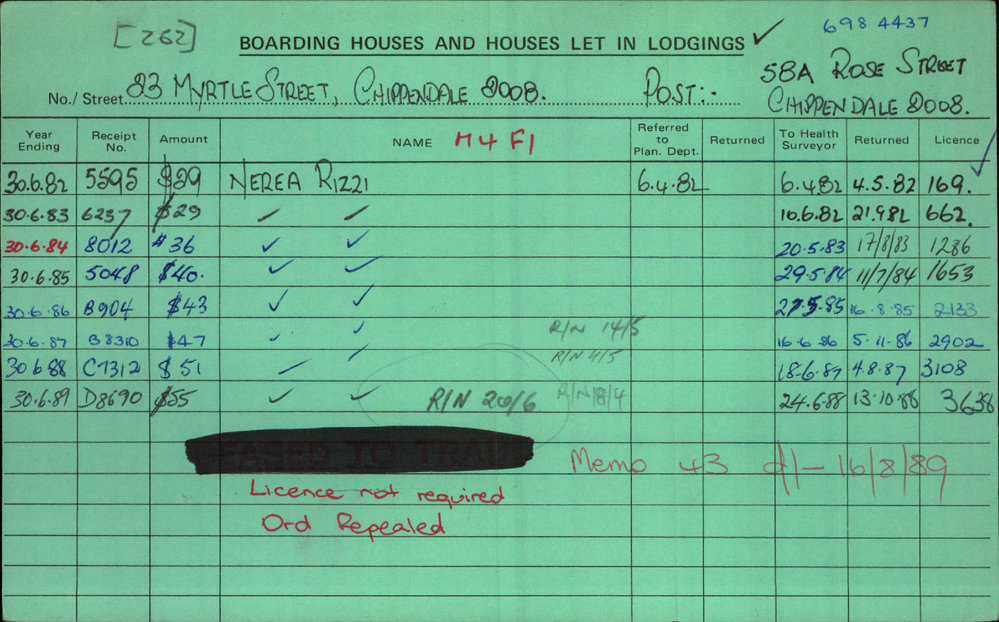 [262]
698 4437
BOARDING HOUSES AND HOUSES LET IN LODGINGS ✓
58A ROSE STREET
No./Street 83 MYRTLE STREET, CHIPPENDALE 2008. POST:-
CHIPPENDALE 2008.
Year Ending Receipt No. Amount NAME M4 F1 Referred to Plan. Dept. Returned To Health Surveyor Returned Licence
30.6.82 5595 $29 NEREA RIZZI 6.4.82 6.4.82 4.5.82 169. ✓
30.6.83 6237 $29 ✓ ✓ 10.6.82 21.9.82 662.
30.6.84 8012 $36 ✓ ✓ 20.5.83 17/8/83 1286
30.6.85 5048 $40. ✓ ✓ 29.5.84 11/7/84 1653
30.6.86 B904 $43 ✓ ✓ 27.5.85 16.8.85 2133
30.6.87 B8310 $47 ✓ ✓ R/N 14/5 16.6.86 5.11.86 2902
30 6 88 C7312 $51 ✓ ✓ R/N 4/5 18.6.87 4.8.87 3108
30.6.89 D8690 $55 ✓ ✓ R/N 20/6 R/N 18/4 24.6.88 13.10.88 3638
TO
Memo 43 d/- 16/8/89
Licence not required
Ord Repealed